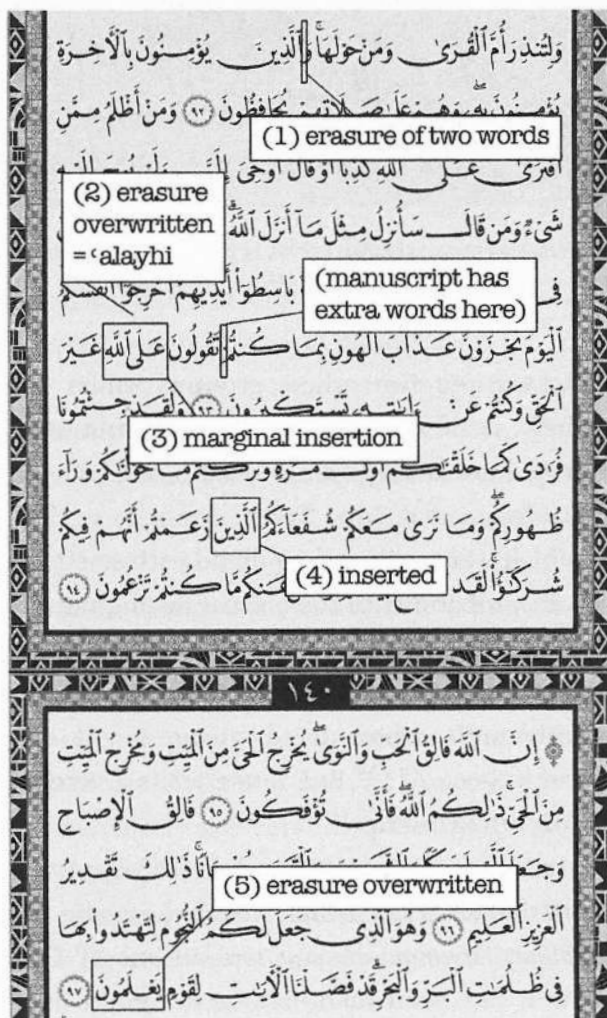 وَلِتُنذِرَ أُمَّ ٱلْقُرَىٰ وَمَنْ حَوْلَهَا ۚ وَٱلَّذِينَ يُؤْمِنُونَ بِٱلْأَخِرَةِ
يُؤْمِنُونَ بِهِۦ ۖ وَهُمْ عَلَىٰ صَلَاتِهِمْ يُحَافِظُونَ ٩٢ وَمَنْ أَظْلَمُ مِمَّنِ
(1) erasure of two words
ٱفْتَرَىٰ عَلَى ٱللَّهِ كَذِبًا أَوْ قَالَ أُوحِىَ
(2) erasure
overwritten
=ʿalayhi
شَىْءٌ وَمَن قَالَ سَأُنزِلُ مِثْلَ مَآ أَنزَلَ ٱللَّهُ ۗ
(manuscript has
extra words here)
فِى بَاسِطُوٓا۟ أَيْدِيهِمْ أَخْرِجُوٓا۟ أَنفُسَكُمُ
ٱلْيَوْمَ تُجْزَوْنَ عَذَابَ ٱلْهُونِ بِمَا كُنتُمْ تَقُولُونَ عَلَى ٱللَّهِ غَيْرَ
ٱلْحَقِّ وَكُنتُمْ عَنْ ءَايَٰتِهِۦ تَسْتَكْبِرُونَ ٩٣ وَلَقَدْ جِئْتُمُونَا
(3) marginal insertion
فُرَٰدَىٰ كَمَا خَلَقْنَٰكُمْ أَوَّلَ مَرَّةٍ وَتَرَكْتُم مَّا خَوَّلْنَٰكُمْ وَرَآءَ
ظُهُورِكُمْ ۖ وَمَا نَرَىٰ مَعَكُمْ شُفَعَآءَكُمُ ٱلَّذِينَ زَعَمْتُمْ أَنَّهُمْ فِيكُمْ
(4) inserted
شُرَكَٰٓؤُا۟ ۚ لَقَد عَنكُم مَّا كُنتُمْ تَزْعُمُونَ ٩٤
١٤٠
إِنَّ ٱللَّهَ فَالِقُ ٱلْحَبِّ وَٱلنَّوَىٰ ۖ يُخْرِجُ ٱلْحَىَّ مِنَ ٱلْمَيِّتِ وَمُخْرِجُ ٱلْمَيِّتِ
مِنَ ٱلْحَىِّ ۚ ذَٰلِكُمُ ٱللَّهُ ۖ فَأَنَّىٰ تُؤْفَكُونَ ٩٥ فَالِقُ ٱلْإِصْبَاحِ
وَجَعَلَ ذَٰلِكَ تَقْدِيرُ
(5) erasure overwritten
ٱلْعَزِيزِ ٱلْعَلِيمِ ٩٦ وَهُوَ ٱلَّذِى جَعَلَ لَكُمُ ٱلنُّجُومَ لِتَهْتَدُوا۟ بِهَا
فِى ظُلُمَٰتِ ٱلْبَرِّ وَٱلْبَحْرِ ۗ قَدْ فَصَّلْنَا ٱلْأَيَٰتِ لِقَوْمٍ يَعْلَمُونَ ٩٧